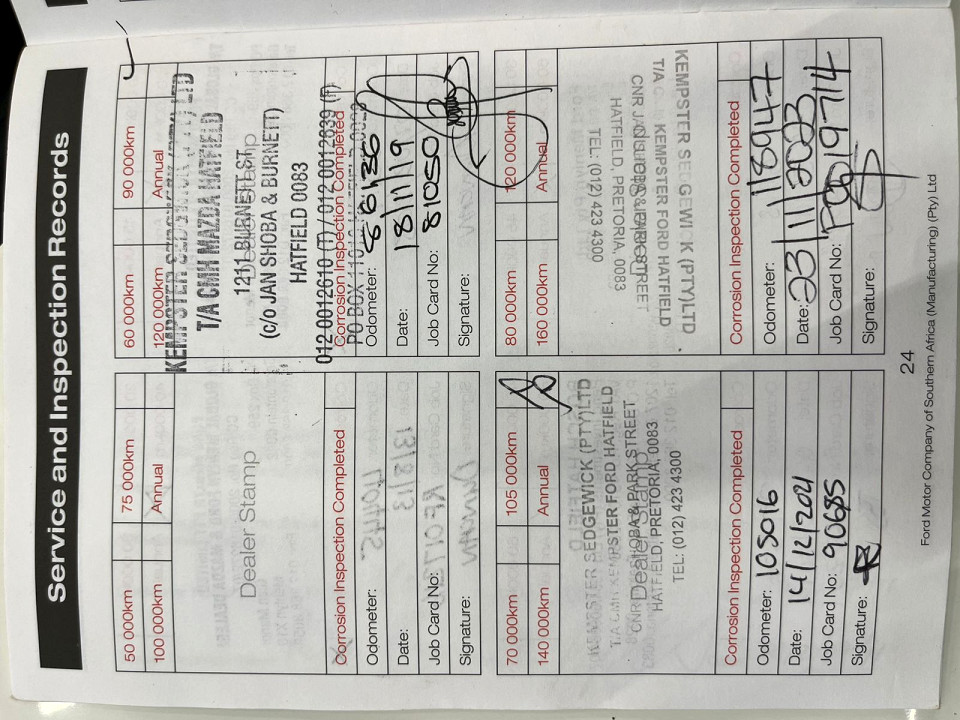 Service and Inspection Records
50 000km 75 000km
100 000km Annual
Dealer Stamp
Corrosion Inspection Completed
Odometer:
Date:
Job Card No:
Signature:
60 000km 90 000km
120 000km Annual
KEMPSTER SEDGEWICK (PTY) LTD
T/A CMH MAZDA HATFIELD
1211 BURNETT ST
Dealer Stamp
(c/o JAN SHOBA & BURNETT)
HATFIELD 0083
012 0012610 (T) / 012 0012639 (F)
Corrosion Inspection Completed
PO BOX
Odometer: 88436
Date: 18/11/19
Job Card No: 81050
Signature:
70 000km 105 000km
140 000km Annual
KEMPSTER SEDGEWICK (PTY)LTD
T/A CMH KEMPSTER FORD HATFIELD
CNR SHOBA & PARK STREET
Dealer Stamp
HATFIELD, PRETORIA, 0083
TEL: (012) 423 4300
Corrosion Inspection Completed
Odometer: 105016
Date: 14/12/2021
Job Card No: 90685
Signature:
80 000km 120 000km
160 000km Annual
KEMPSTER SEDGEWICK (PTY)LTD
T/A KEMPSTER FORD HATFIELD
CNR JAN SHOBA & PARK STREET
HATFIELD, PRETORIA, 0083
TEL: (012) 423 4300
Corrosion Inspection Completed
Odometer: 118947
Date: 23/11/2023
Job Card No:
Signature:
24
Ford Motor Company of Southern Africa (Manufacturing) (Pty) Ltd